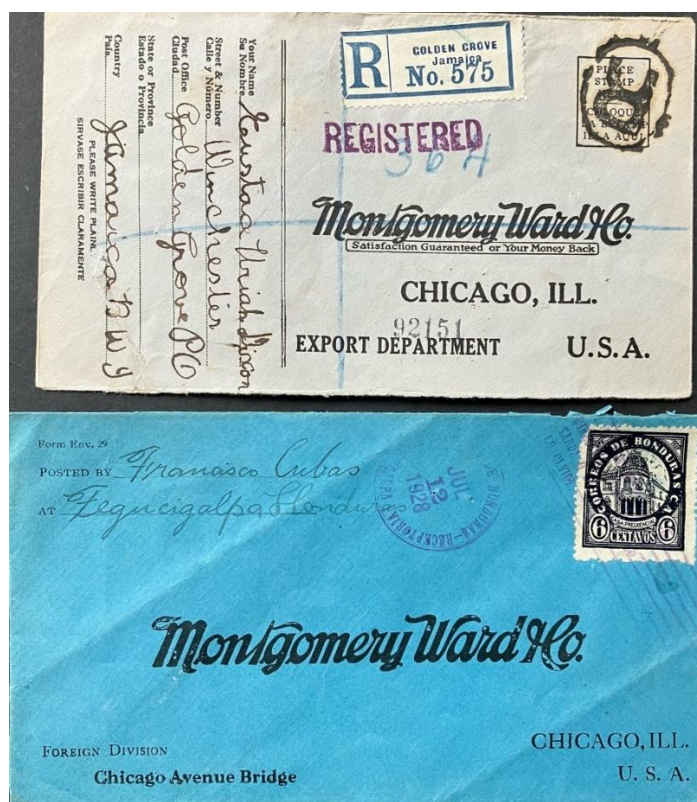 Your Name
Su Nombre Eustace Uriah Dixon
Street & Number
Calle y Número Winchester
Post Office
Ciudad Golden Grove P.O
State or Province
Estado o Provincia
Country
País Jamaica B W I
PLEASE WRITE PLAINLY
SIRVASE ESCRIBIR CLARAMENTE
R
GOLDEN GROVE
Jamaica
No. 575
REGISTERED
364
PLACE
STAMP
COLOQUE
AQUI
Montgomery Ward & Co.
Satisfaction Guaranteed or Your Money Back
CHICAGO, ILL.
92151
EXPORT DEPARTMENT U.S.A.
Form Env. 29
POSTED BY Francisco Cubas
AT Tegucigalpa Honduras
DE HONDURAS-RECEPTORIA
JUL
12
1928
CORREOS DE HONDURAS C.A.
CASA PRESIDENCIAL
6 CENTAVOS 6
Montgomery Ward & Co.
FOREIGN DIVISION
Chicago Avenue Bridge
CHICAGO, ILL.
U. S. A.